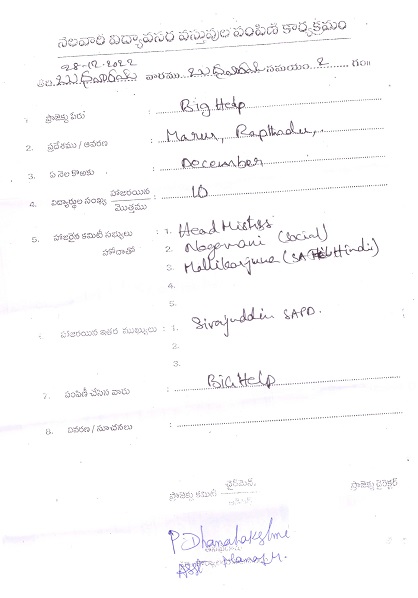 నెలవారి విద్యావసర వస్తువుల పంపిణి కార్యక్రమం
28-12-2022
తేది. బుధవారము వారము బుధవారము సమయం. 2 గం॥
1. ప్రాజెక్టు పేరు : Big Help
2. ప్రదేశము / ఆవరణ : Marur, Rapthadu,
3. ఏ నెల కొఱకు : December
4. విద్యార్థుల సంఖ్య హాజరయిన / మొత్తము : 10
5. హాజరైన కమిటీ సభ్యులు : 1. Head Mistiss
హోదాతో 2. Nagemani (Social)
3. Mallikarjuna (SA Hindi)
4.
5.
6. హాజరయిన ఇతర ముఖ్యులు : 1. Sirajuddin SAPD.
2.
3.
7. పంపిణీ చేసిన వారు : Big Help
8. వివరణ / సూచనలు :
ప్రాజెక్టు కమిటి ఛైర్మెన్. ప్రాజెక్టు డైరెక్టర్
P. Dhanalakshmi